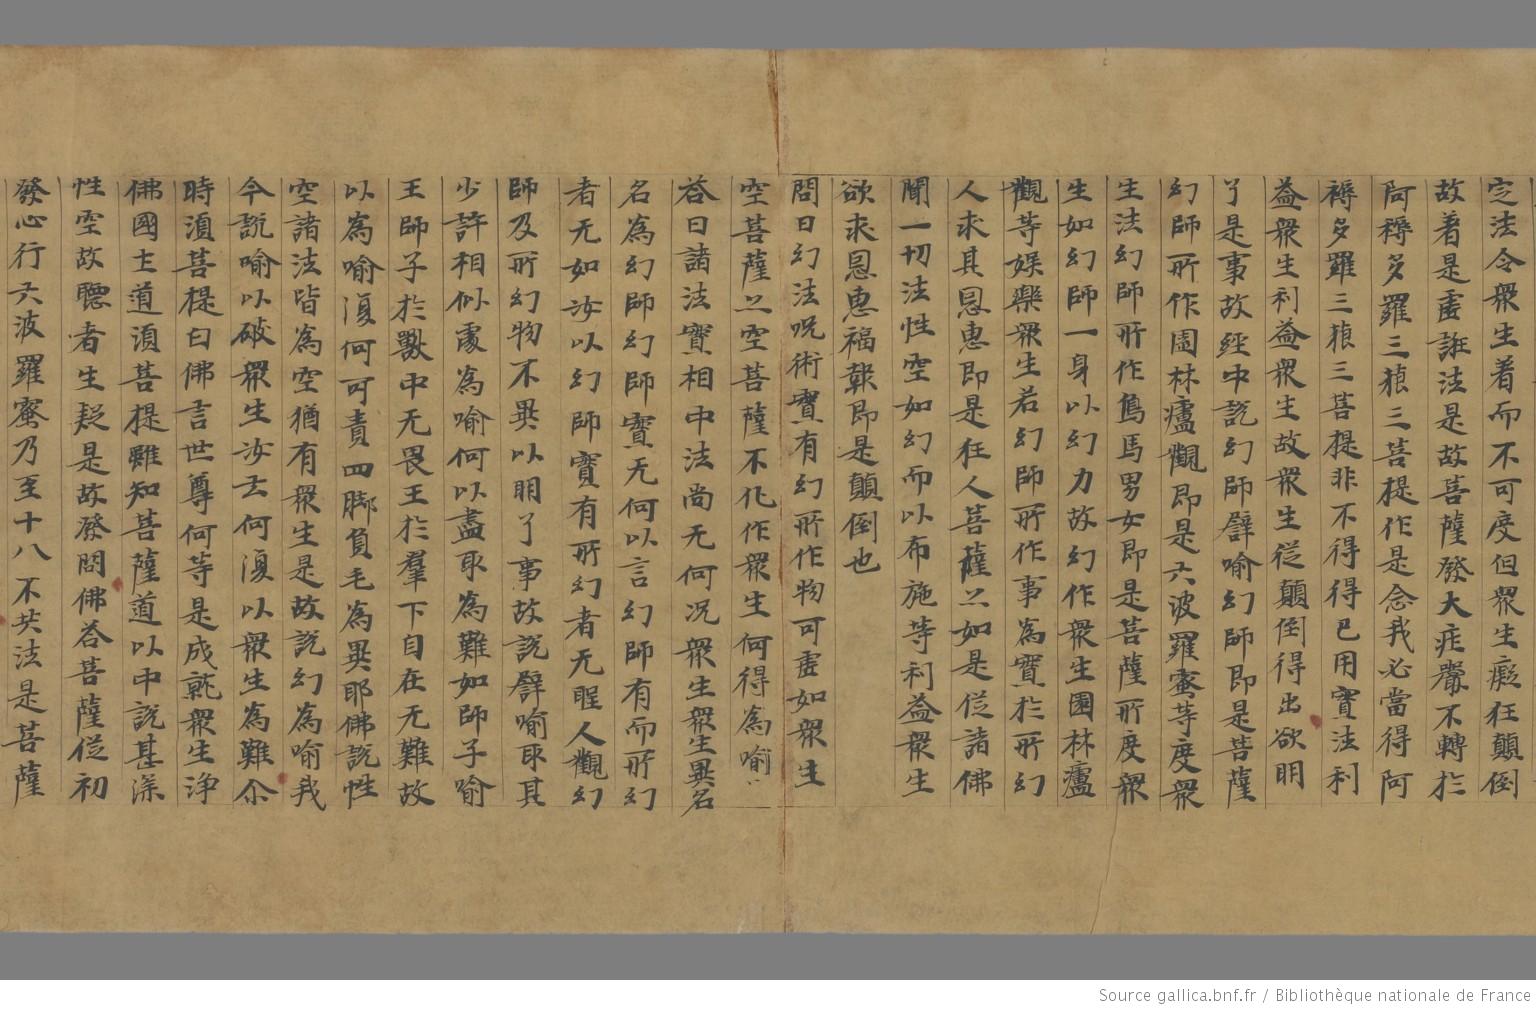 定法令衆生着而不可度但衆生癡狂顛倒
故着是虛誑法是故菩薩發大庄嚴不轉於
阿耨多羅三藐三菩提作是念我必當得阿
耨多羅三藐三菩提非不得得已用實法利
益衆生利益衆生故衆生從顛倒得出欲明
了是事故經中說幻師譬喻幻師即是菩薩
幻師所作園林廬觀即是六波羅蜜等度衆
生法幻師所作馬男女即是菩薩所度衆
生如幻師一身以幻力故幻作衆生園林廬
觀等娛樂衆生若幻師所作事為實於所幻
人求其恩惠即是狂人菩薩亦如是從諸佛
聞一切法性空如幻而以布施等利益衆生
欲求恩惠福報即是顛倒也
問曰幻法呪術實有幻所作物可虛如衆生
空菩薩亦空菩薩不化作衆生何得為喻
荅曰諸法實相中法尚无何況衆生衆生異名
名為幻師幻師實无何以言幻師有而所幻
者无如汝以幻師實有所幻者无聖人觀幻
師及所幻物不異以明了事故說譬喻取其
少許相似處為喻何以盡取為難如師子喻
王師子於獸中无畏王於羣下自在无難故
以為喻復何可責四脚負毛為異耶佛說性
空諸法皆為空猶有衆生是故說幻為喻我
今說喻以破衆生汝云何復以衆生為難尒
時湏菩提白佛言世尊何等是成就衆生淨
佛國土道湏菩提雖知菩薩道以中說甚深
性空故聽者生疑是故發問佛荅菩薩從初
發心行六波羅蜜乃至十八不共法是菩薩
Source gallica.bnf.fr / Bibliothèque nationale de France